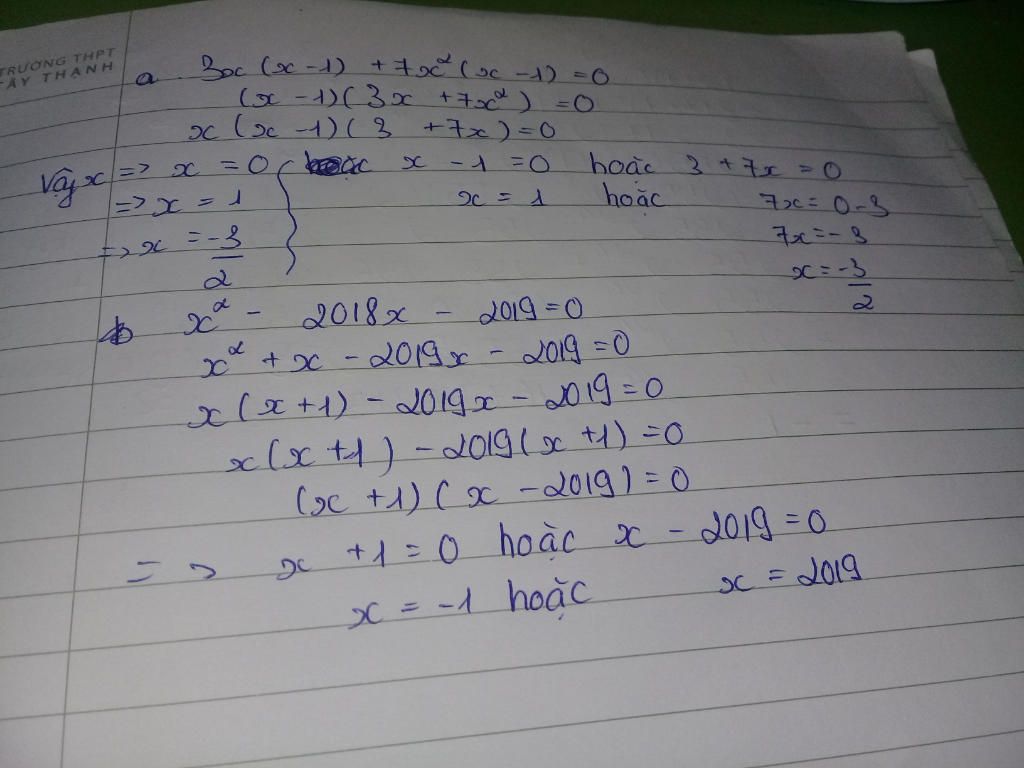 TRƯỜNG THPT
TÂY THẠNH
a 3x (x - 1) + 7x² (x - 1) = 0
(x - 1)(3x + 7x²) = 0
x (x - 1)(3 + 7x) = 0
Vậy x => x = 0 hoặc x - 1 = 0 hoặc 3 + 7x = 0
=> x = 1 x = 1 hoặc 7x = 0 - 3
=> x = -3/2 7x = -3
x = -3/2
b x² - 2018x - 2019 = 0
x² + x - 2019x - 2019 = 0
x (x + 1) - 2019x - 2019 = 0
x (x + 1) - 2019 (x + 1) = 0
(x + 1) (x - 2019) = 0
=> x + 1 = 0 hoặc x - 2019 = 0
x = -1 hoặc x = 2019